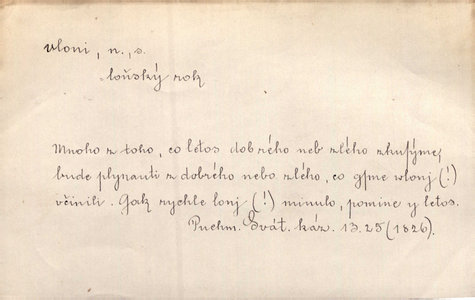 vloni, n., s.
loňský rok
Mnoho z toho, co létos dobrého neb zlého zkusýme,
bude plynauti z dobrého nebo zlého, co gsme wlonj (!)
včinili. Gak rychle lonj (!) minulo, pomine y letos.
Puchm. Svát. káz. 13.25 (1826).